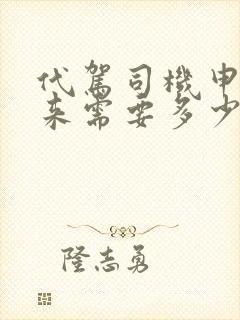 代駕司機申
来需要多少
隆志勇